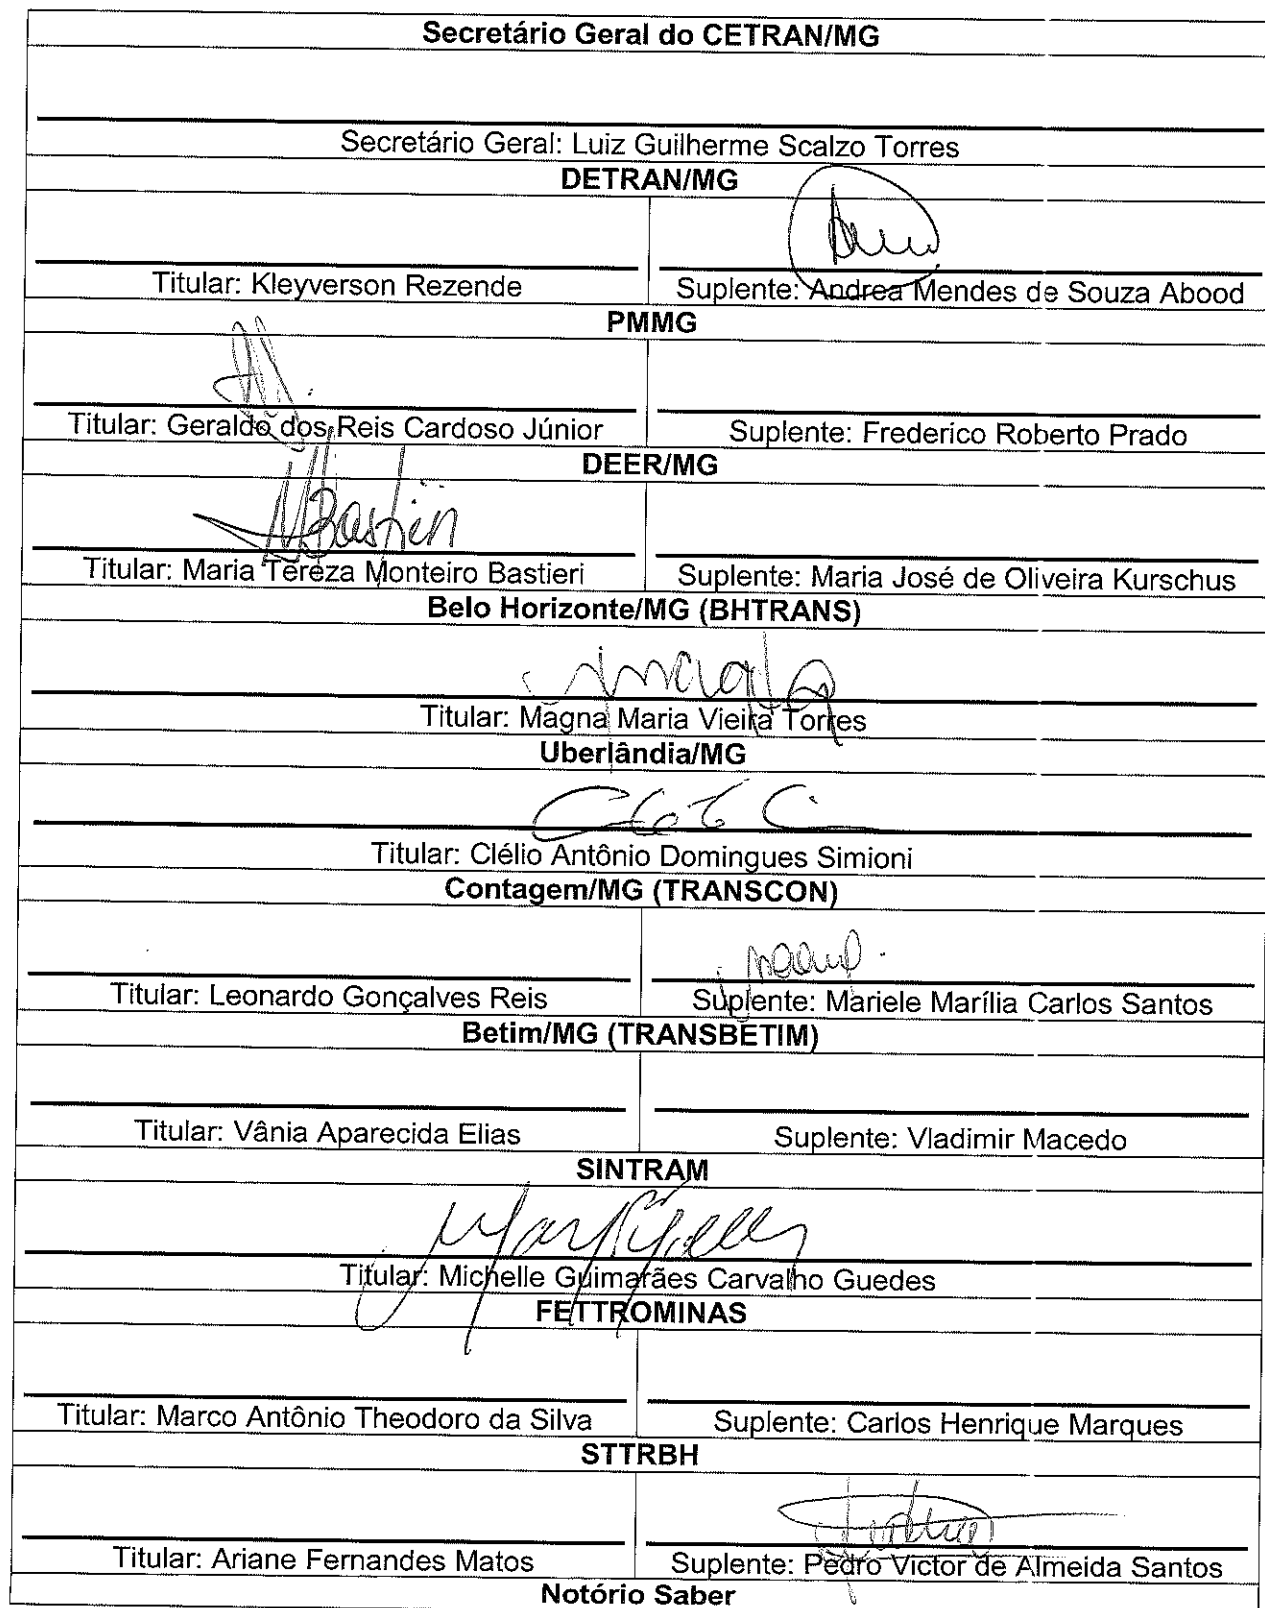 Secretário Geral do CETRAN/MG
Secretário Geral: Luiz Guilherme Scalzo Torres
DETRAN/MG
Titular: Kleyverson Rezende
Suplente: Andrea Mendes de Souza Abood
PMMG
Titular: Geraldo dos Reis Cardoso Júnior
Suplente: Frederico Roberto Prado
DEER/MG
MBastieri
Titular: Maria Tereza Monteiro Bastieri
Suplente: Maria José de Oliveira Kurschus
Belo Horizonte/MG (BHTRANS)
Titular: Magna Maria Vieira Torres
Uberlândia/MG
Titular: Clélio Antônio Domingues Simioni
Contagem/MG (TRANSCON)
Titular: Leonardo Gonçalves Reis
Suplente: Mariele Marília Carlos Santos
Betim/MG (TRANSBETIM)
Titular: Vânia Aparecida Elias
Suplente: Vladimir Macedo
SINTRAM
Titular: Michelle Guimarães Carvalho Guedes
FETTROMINAS
Titular: Marco Antônio Theodoro da Silva
Suplente: Carlos Henrique Marques
STTRBH
Titular: Ariane Fernandes Matos
Suplente: Pedro Victor de Almeida Santos
Notório Saber